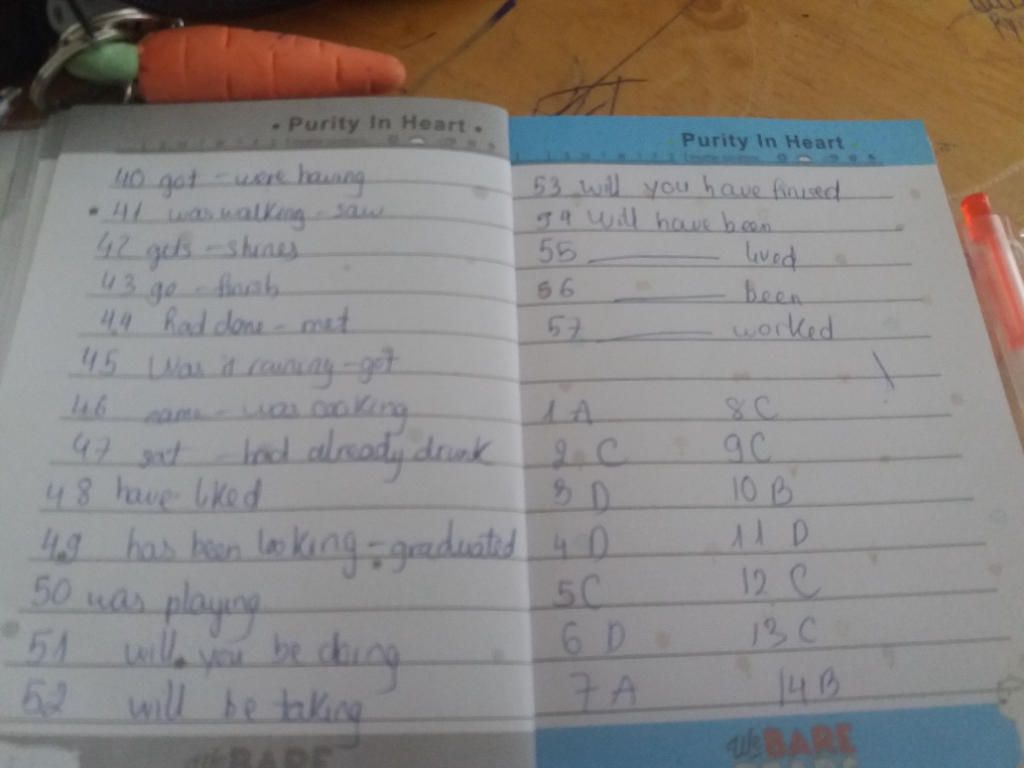 • Purity In Heart •
40 got - were having
• 41 was walking - saw
42 gets - shines
43 go - finish
44 had done - met
45 Was it raining - got
46 came - was cooking
47 eat - had already drunk
48 have liked
49 has been looking - graduated
50 was playing
51 will you be doing
52 will be taking
BARE
Purity In Heart
53 will you have finised
54 Will have been
55 ———— lived
56 ———— been
57 ———— worked
1 A 8 C
2 C 9 C
3 D 10 B
4 D 11 D
5 C 12 C
6 D 13 C
7 A 14 B
We BARE